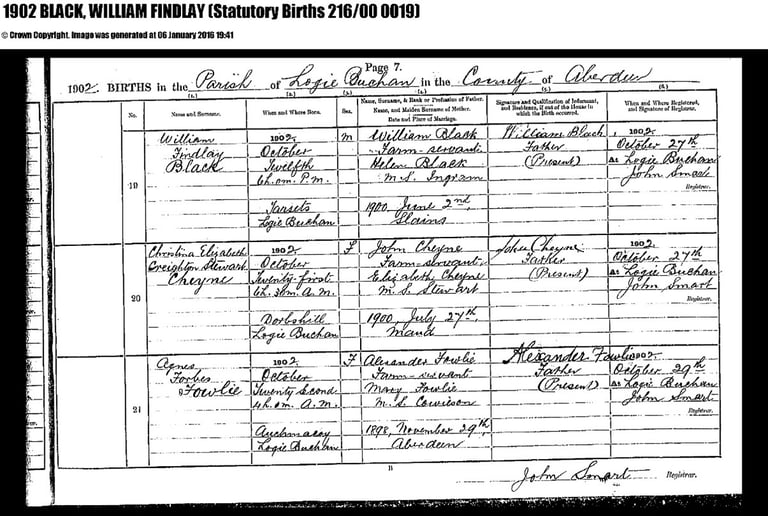 1902 BLACK, WILLIAM FINDLAY (Statutory Births 216/00 0019)
© Crown Copyright. Image was generated at 06 January 2016 19:41
Page 7.
1902. BIRTHS in the Parish of Logie Buchan in the County of Aberdeen
(1.) (2.) (3.) (4.) (5.) (6.)
No. Name and Surname. When and Where Born. Sex. Name, Surname, & Rank or Profession of Father. Name, and Maiden Surname of Mother. Date and Place of Marriage. Signature and Qualification of Informant, and Residence, if out of the House in which the Birth occurred. When and Where Registered, and Signature of Registrar.
19
William
Findlay
Black
1902.
October
Twelfth
6h. 0m. P.M.
Tarsets
Logie Buchan
M
William Black
Farm-servant
Helen Black
M.S. Ingram
1900, June 2nd,
Slains
William Black
Father
(Present)
1902,
October 27th
At Logie Buchan
John Smart
Registrar.
20
Christina Elizabeth
Creighton Stewart
Cheyne
1902
October
Twenty-first
6h. 30m. A.M.
Logie Buchan
F
John Cheyne
Farm-servant
Elizabeth Cheyne
M.S. Stewart
1900, July 27th,
Maud
John Cheyne
Father
(Present)
1902.
October 27th
At Logie Buchan
John Smart
Registrar.
21
Agnes
Forbes
Fowlie
1902
October
Twenty Second
4h. 0m. A.M.
Auchmacoy
Logie Buchan
F
Alexander Fowlie
Farm-servant
Mary Fowlie
M.S. Cowieson
1898, November 29th,
Aberdeen
Alexander Fowlie
Father
(Present)
1902.
October 29th
At Logie Buchan
John Smart
Registrar.
11
John Smart Registrar.